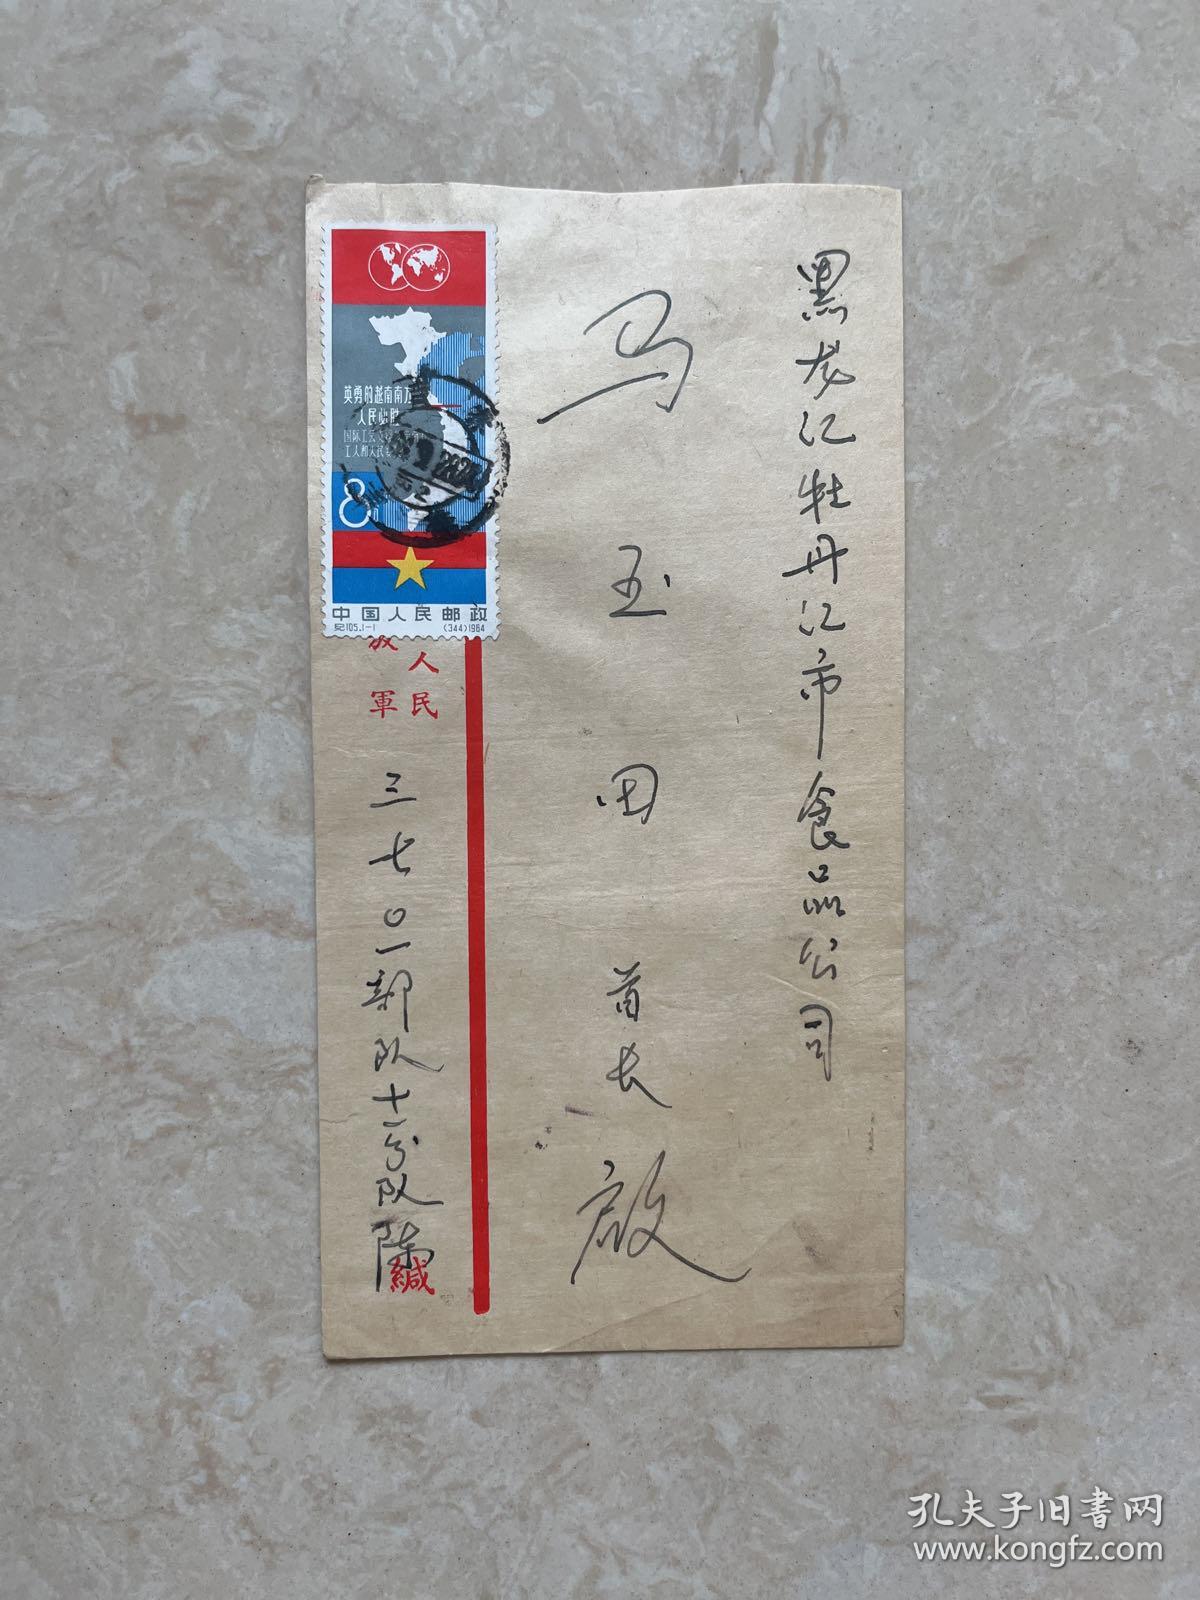 黑龙江牡丹江市食品公司
马玉田首长啟
人民
放軍
三七〇一部队十一分队陈
緘
英勇的越南南方
人民必胜
国际工会
工人和人民
8
中国人民邮政
纪105.1-1 (344)1964
孔夫子旧书网
www.kongfz.com